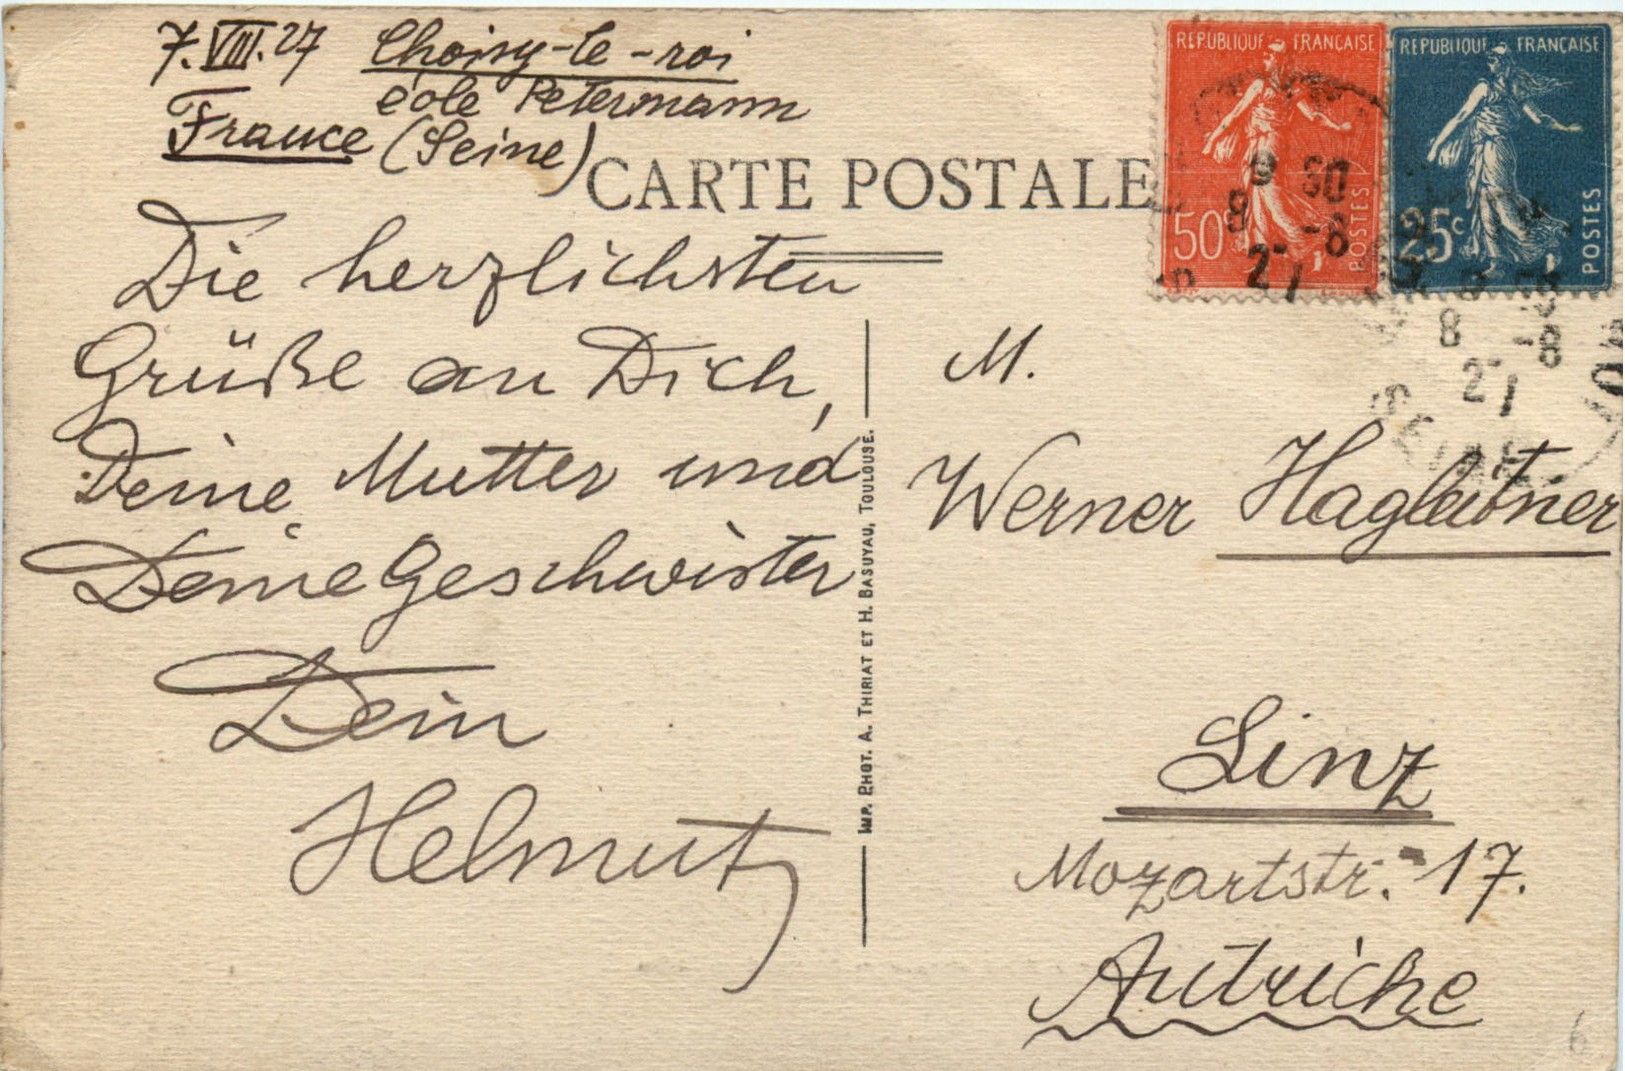 7.VIII.27 Choisy-le-roi
école Petermann
France (Seine)
CARTE POSTALE
Die herzlichsten
Grüße an Dich,
Deine Mutter und
Deine Geschwister
Dein
Helmut
IMP. PHOT. A. THIRIAT ET H. BASUYAU, TOULOUSE.
REPUBLIQUE FRANÇAISE
50c
POSTES
REPUBLIQUE FRANÇAISE
25c
POSTES
9 30
8 -8
27
8 -8
27
SEINE
M.
Werner Hagleitner
Linz
Mozartstr. 17.
Autriche
6